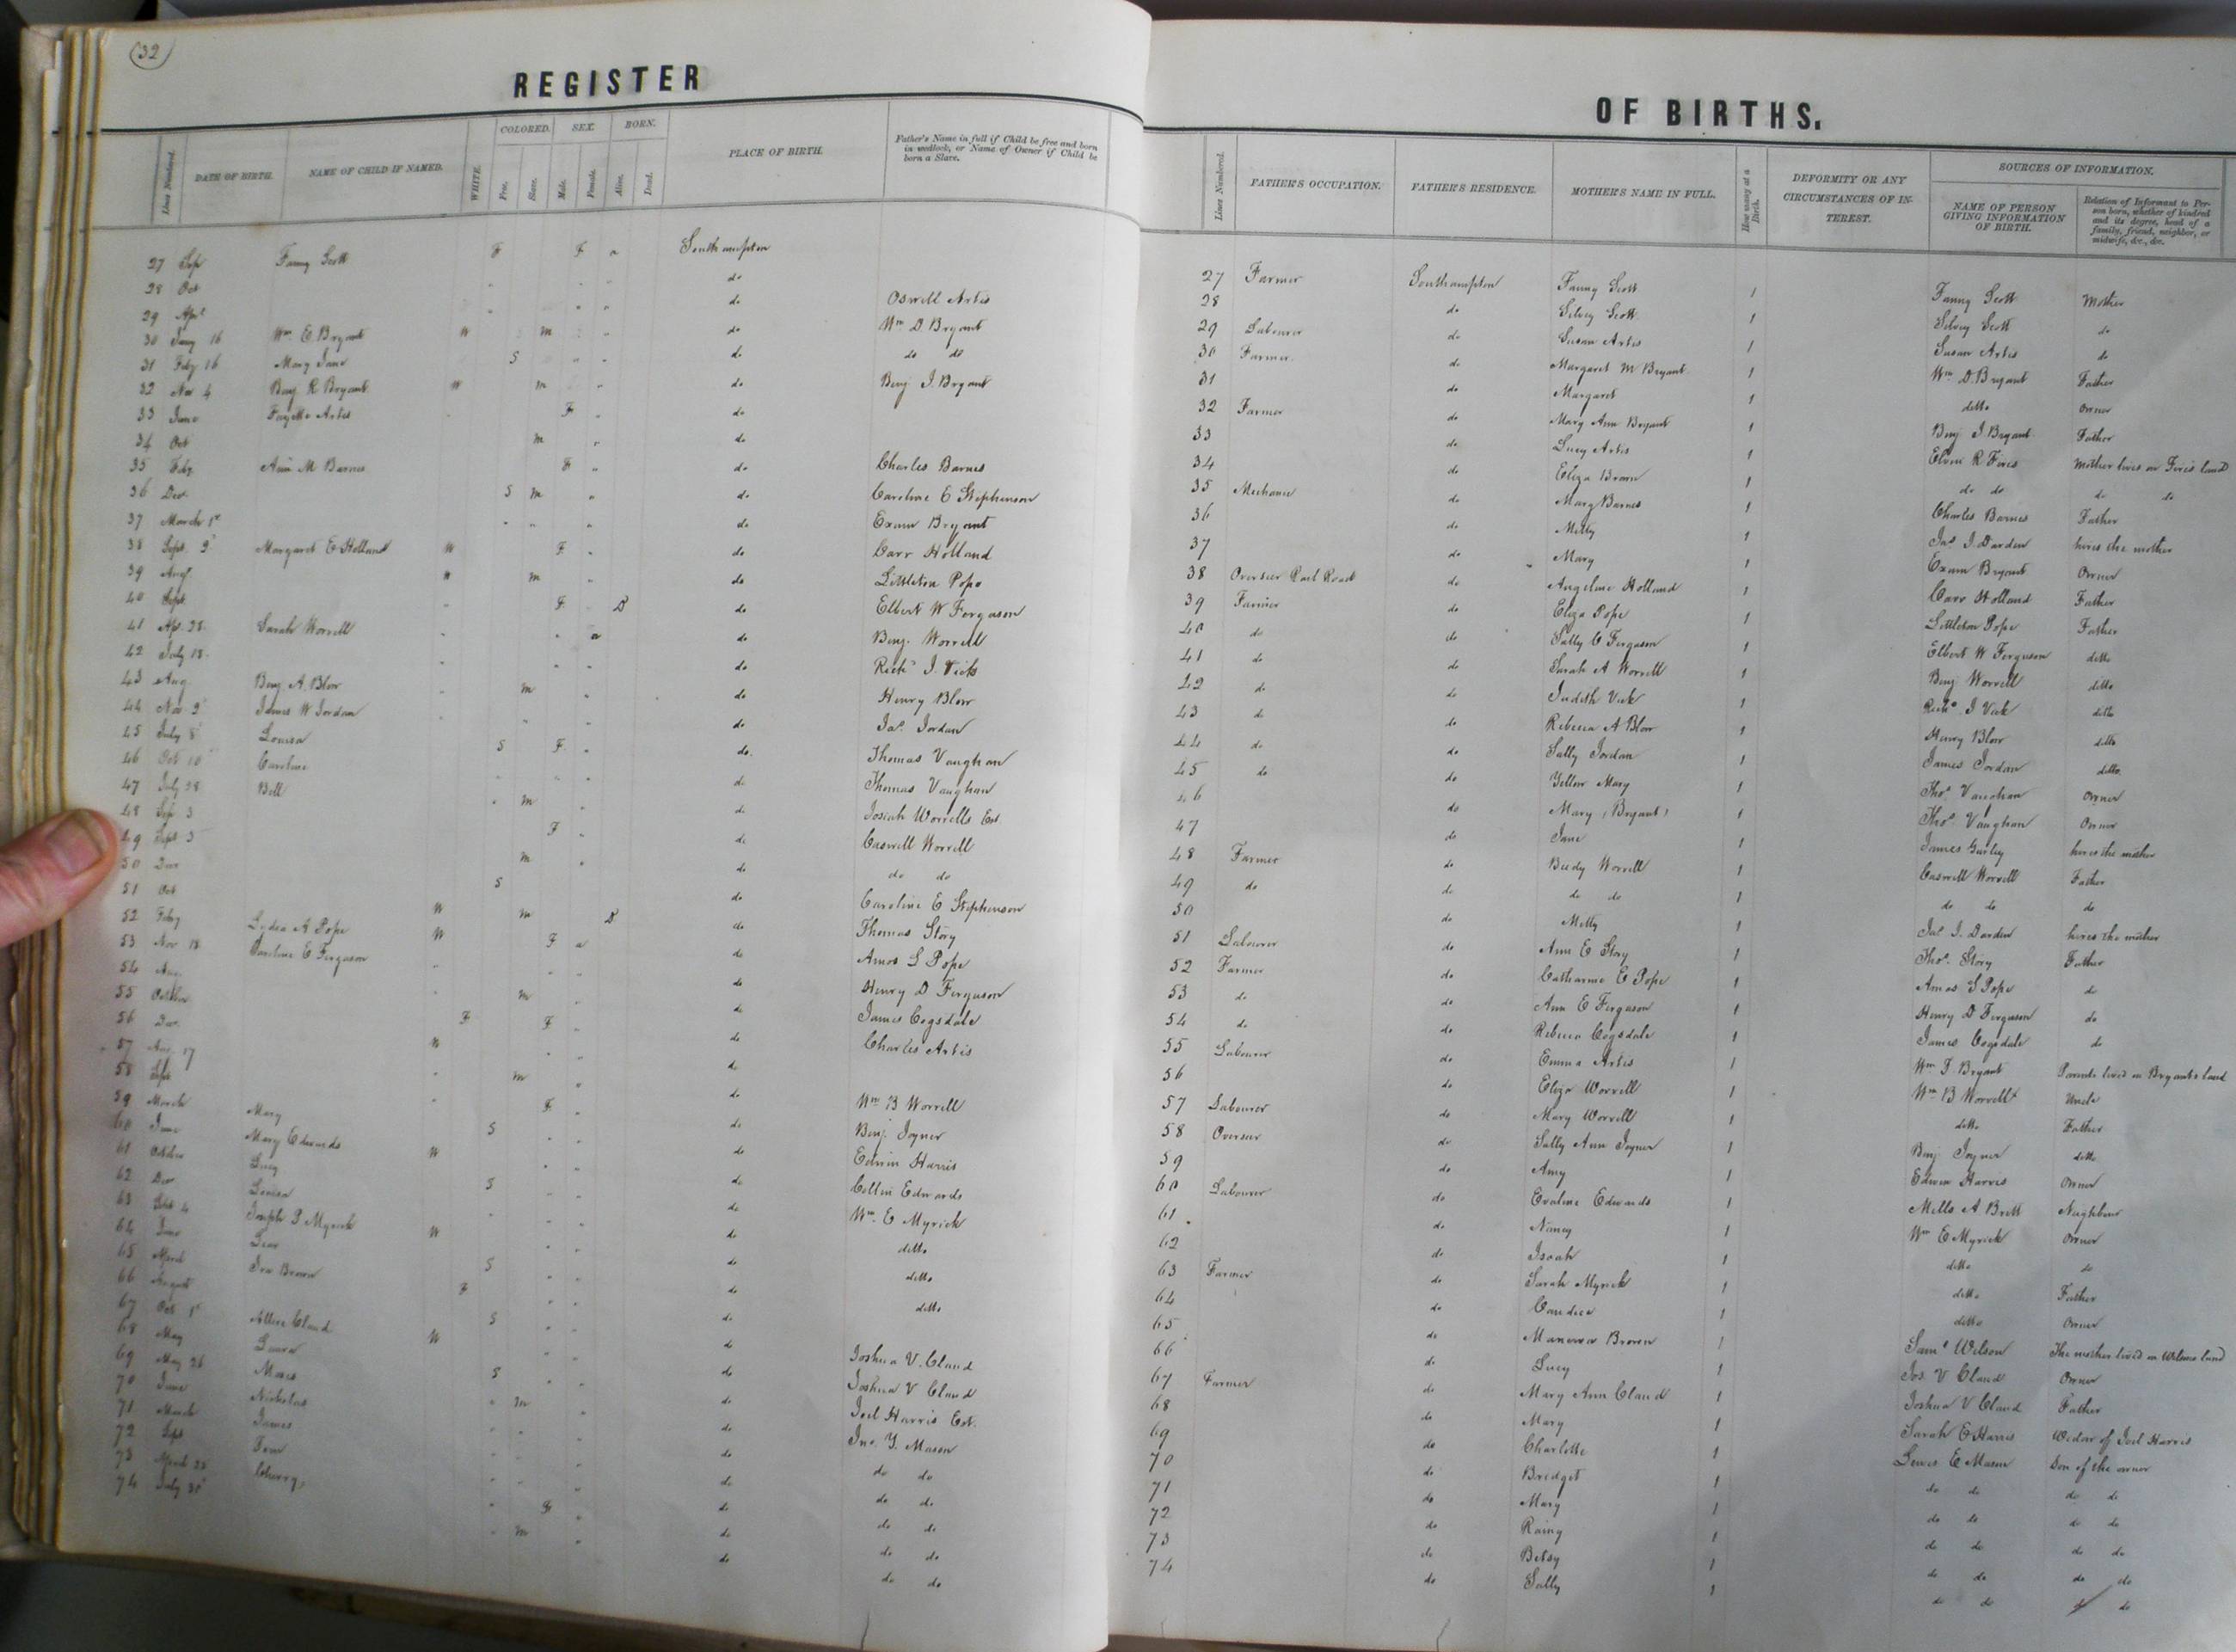 32
REGISTER
OF BIRTHS.
Lines Numbered. DATE OF BIRTH. NAME OF CHILD IF NAMED. WHITE. COLORED. Free. Slave. SEX. Male. Female. BORN. Alive. Dead. PLACE OF BIRTH. Father's Name in full if Child be free and born in wedlock, or Name of Owner if Child be born a Slave.
Lines Numbered. FATHER'S OCCUPATION. FATHER'S RESIDENCE. MOTHER'S NAME IN FULL. How many at a Birth. DEFORMITY OR ANY CIRCUMSTANCES OF INTEREST. SOURCES OF INFORMATION. NAME OF PERSON GIVING INFORMATION OF BIRTH. Relation of Informant to Person born, whether of kindred and its degree, head of a family, friend, neighbor, or midwife, &c., &c.
27 Sep Fanny Scott F F a Southampton
28 Oct do
29 Apl do Oswell Artis
30 Jany 16 Wm E. Bryant W M do Wm D Bryant
31 Feby 16 Mary Jane S do do do
32 Nov 4 Benj R Bryant W m do Benj J. Bryant
33 June Fayette Artis F do
34 Oct m do
35 Feby Ann M Barnes F do Charles Barnes
36 Dec S m do Caroline E Stephenson
37 March 1st do Exum Bryant
38 Sept 9 Margaret E Holland W F do Carr Holland
39 Augt m do Littleton Pope
40 Sept F D do Elbert W Ferguson
41 Ap. 28 Sarah Worrell a do Benj. Worrell
42 July 18 do Richd J. Vick
43 Aug Benj. A. Blow m do Henry Blow
44 Nov 9 James W Jordan do Jas. Jordan
45 July 8 Louisa S F do. Thomas Vaughan
46 Oct 10 Caroline do Thomas Vaughan
47 July 28 Bill m do Josiah Worrells Est.
48 Sep 3 F do Caswell Worrell
49 Sept 3 m do do do
50 Dec S do Caroline E Stephenson
51 Oct W m D do Thomas Story
52 Feby Lydia A Pope W F a do Amos S Pope
53 Nov 18 Caroline E Ferguson do Henry D Ferguson
54 Aug m do James Cogsdale
55 October F F do Charles Artis
56 Dec W do
57 Aug 17 m do Wm B Worrell
58 Sept F do Benj. Joyner
59 March Mary S do Edwin Harris
60 June Mary Edwards W do Collin Edwards
61 October Lucy S do Wm. E Myrick
62 Dec Louisa do ditto
63 Joseph P Myrick W do ditto
64 June S do ditto
65 March Ira Brown F do
66 August S do Joshua V. Claud
67 Oct 1st Claud W do Joshua V Claud
68 May Laura S do Joel Harris Est.
69 May 26 Moses m do Jno. Y. Mason
70 June Nicholas do do do
71 March James do do do
72 Sept Tom do do do
73 Cherry F do do do
74 July m do do do
27 Farmer Southampton Fanny Scott 1 Fanny Scott Mother
28 do Silvey Scott 1 Silvey Scott do
29 Labourer do Susan Artis 1 Susan Artis do
30 Farmer do Margaret M Bryant 1 Wm D. Bryant Father
31 do Margaret 1 ditto Owner
32 Farmer do Mary Ann Bryant 1 Benj J Bryant Father
33 do Lucy Artis 1 R Fires Mother lives on Fires land
34 do Eliza Brown 1 do do do do
35 Mechanic do Mary Barnes 1 Charles Barnes Father
36 do Milly 1 Jas. J. Darden hires the mother
37 do Mary 1 Exum Bryant Owner
38 Overseer Rail Road do Angeline Holland 1 Carr Holland Father
39 Farmer do Eliza Pope 1 Littleton Pope Father
40 do do Sally C Ferguson 1 Elbert W Ferguson ditto
41 do do Sarah A Worrell 1 Benj Worrell ditto
42 do do Judith Vick 1 Richd J Vick ditto
43 do do Rebecca A Blow 1 Henry Blow ditto
44 do do Sally Jordan 1 James Jordan ditto
45 do do Yellow Mary 1 Thos. Vaughan Owner
46 do Mary (Bryant) 1 Thos. Vaughan Owner
47 do Jane 1 James Gurley hires the mother
48 Farmer do Beedy Worrell 1 Caswell Worrell Father
49 do do do do 1 do do do
50 do Milly 1 Jas. J. Darden hires the mother
51 Labourer do Ann E Story 1 Thos. Story Father
52 Farmer do Catharine E Pope 1 Amos S Pope do
53 do do Ann E Ferguson 1 Henry D Ferguson do
54 do do Rebecca Cogsdale 1 James Cogsdale do
55 Labourer do Emma Artis 1 Wm J. Bryant Parents lived on Bryants land
56 do Eliza Worrell 1 Wm B Worrell Uncle
57 Labourer do Mary Worrell 1 ditto Father
58 Overseer do Sally Ann Joyner 1 Benj Joyner ditto
59 do Amy 1 Edwin Harris Owner
60 Labourer do Evaline Edwards 1 Mills A Britt Neighbour
61 do Nancy 1 Wm E Myrick Owner
62 do 1 ditto do
63 Farmer do Sarah Myrick 1 ditto Father
64 do Candice 1 ditto Owner
65 do Brown 1 Saml Wilson The mother lived on Wilsons land
66 do Lucy 1 Jos. V Claud Owner
67 Farmer do Mary Ann Claud 1 Joshua V Claud Father
68 do Mary 1 Sarah E Harris Widow of Joel Harris
69 do Charlotte 1 Lewis E Mason Son of the owner
70 do Bridget 1 do do do do
71 do Mary 1 do do do do
72 do Rainy 1 do do do do
73 do Betsy 1 do do do do
74 do Sally 1 do do do do